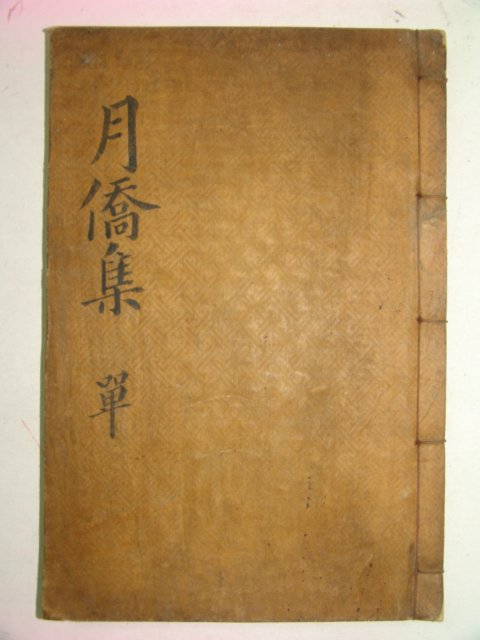 月僑集 單